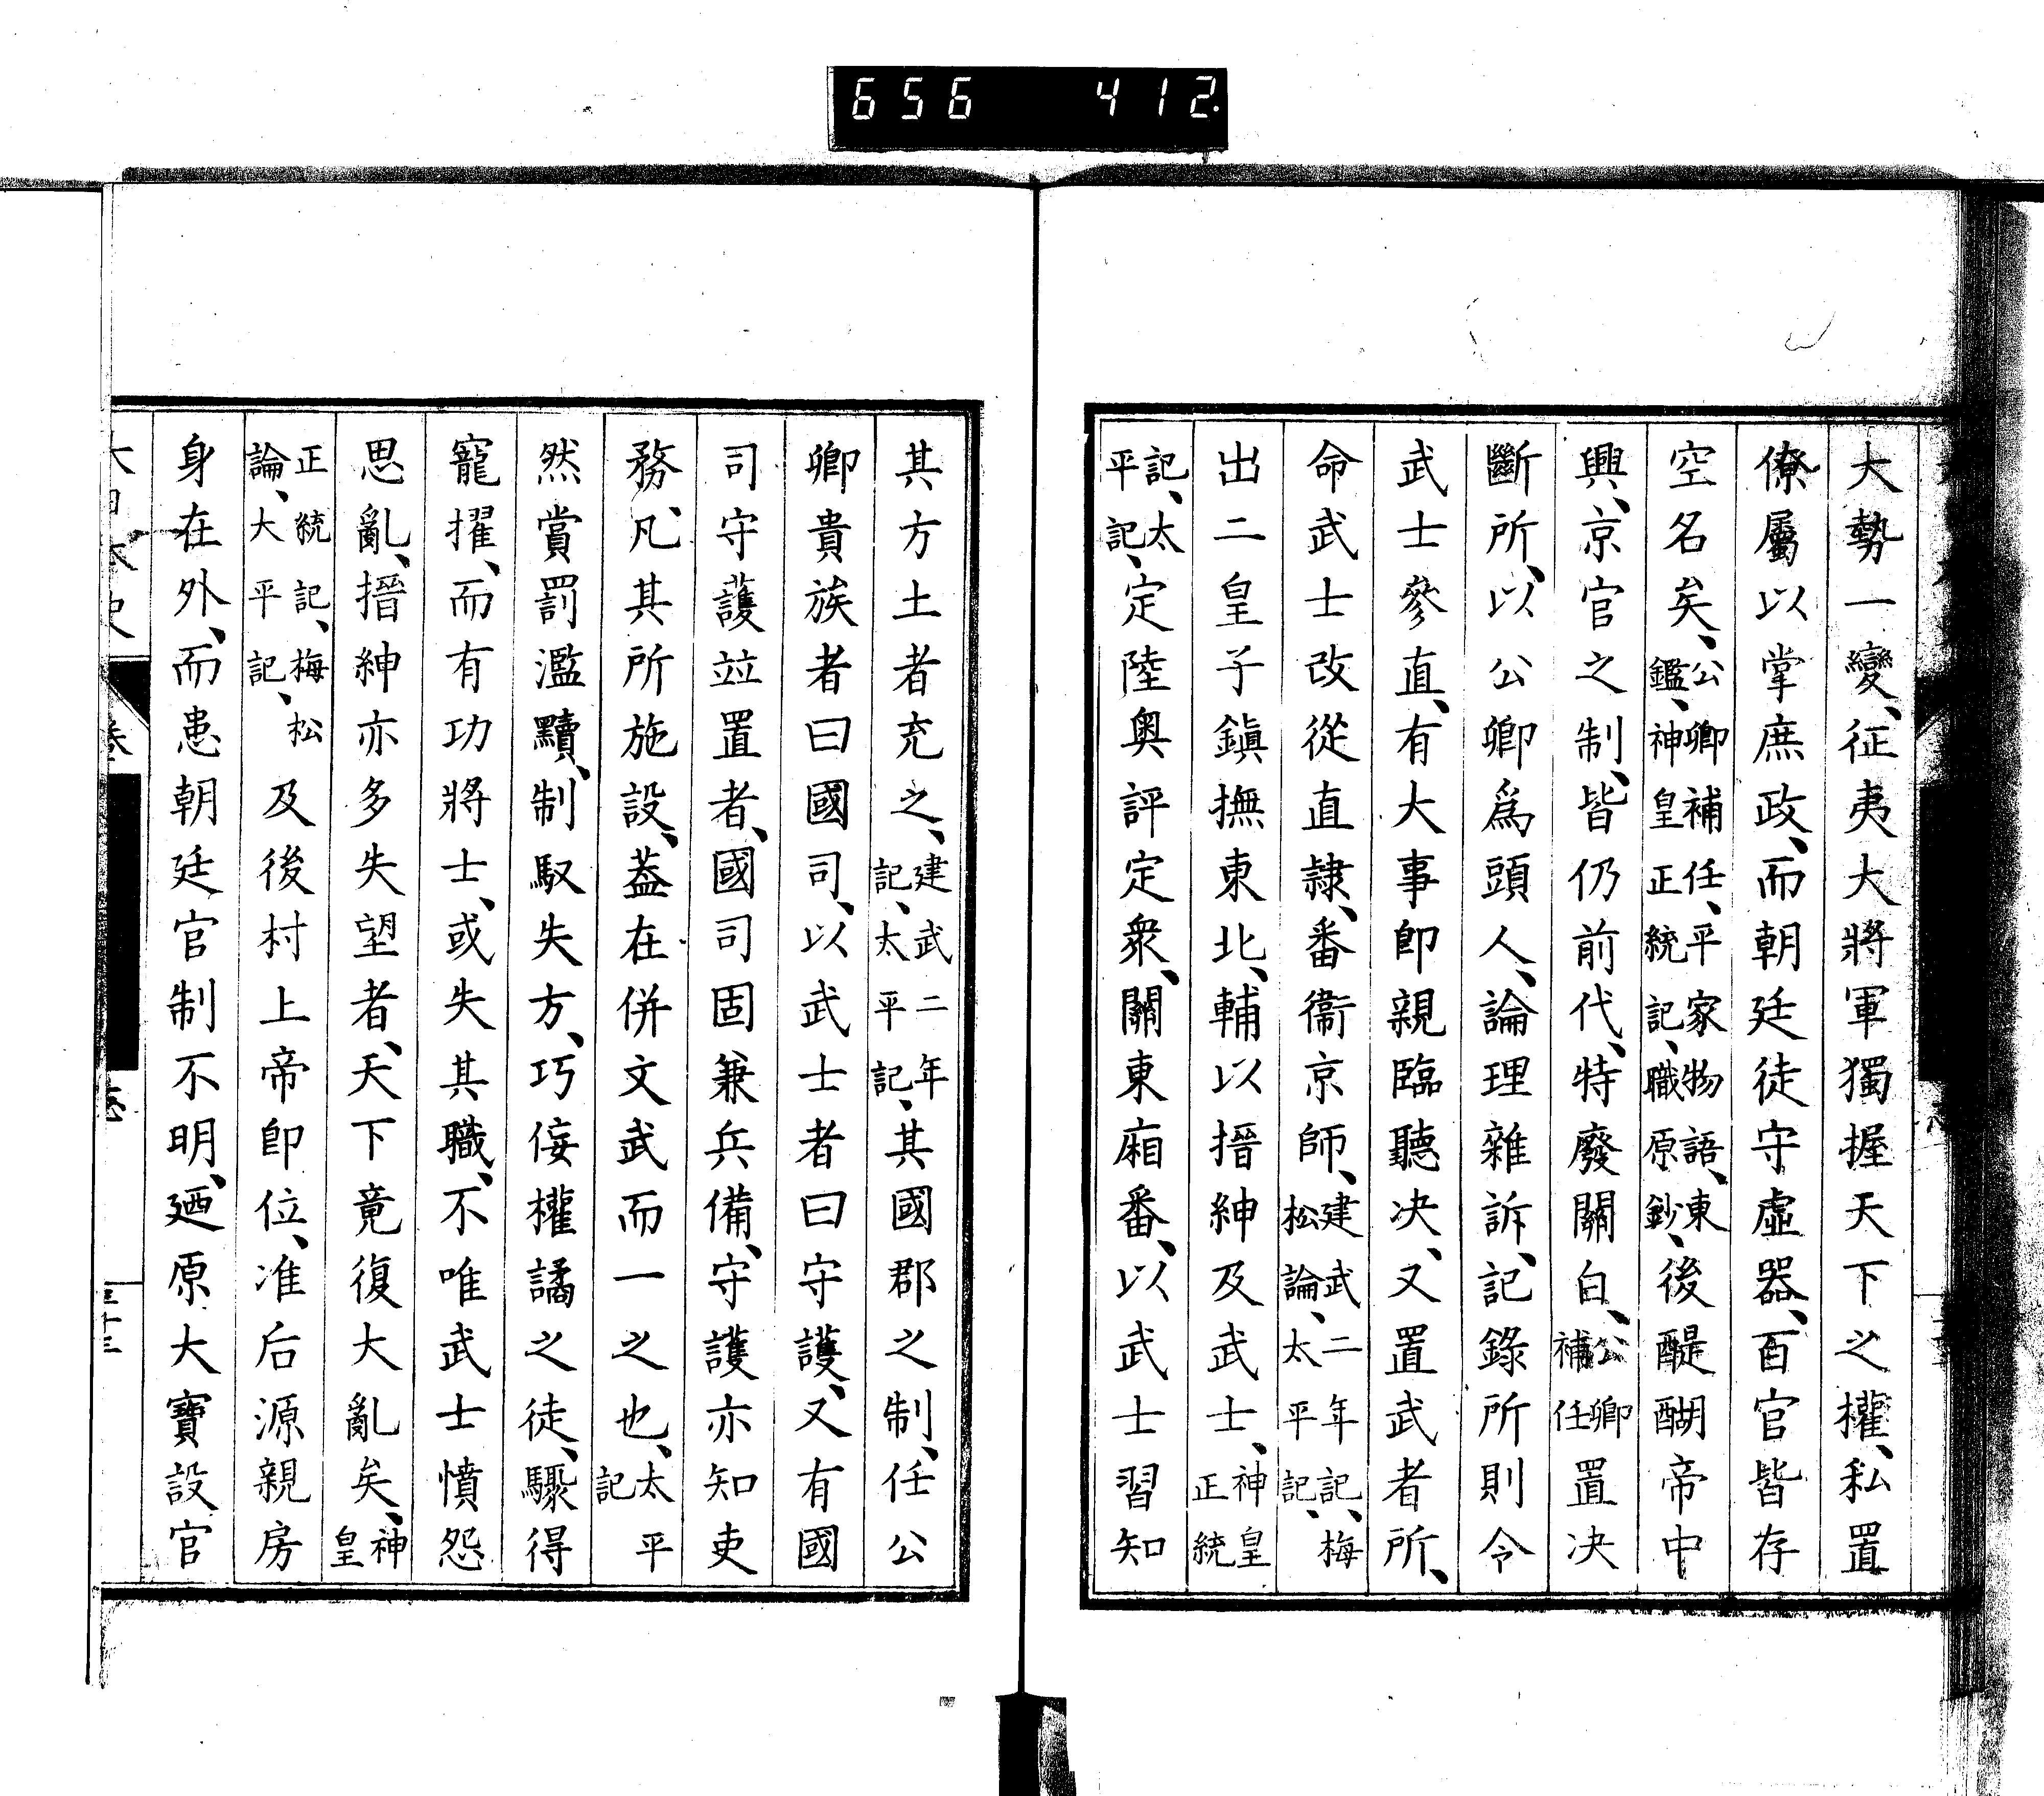 656 412
大勢一變、征夷大將軍獨握天下之權、私置
僚屬以掌庶政、而朝廷徒守虛器、百官皆存
空名矣、公卿補任、平家物語、東鑑、神皇正統記、職原鈔、後醍醐帝中
興、京官之制、皆仍前代、特廢關白、公卿補任置决
斷所、以公卿爲頭人、論理雜訴、記錄所則令
武士參直、有大事卽親臨聽决、又置武者所、
命武士改從直隷、番衞京師、建武二年記、梅松論、太平記、
出二皇子鎭撫東北、輔以搢紳及武士、神皇正統
記、太平記、定陸奥評定衆、關東廂番、以武士習知
其方土者充之、建武二年記、太平記、其國郡之制、任公
卿貴族者曰國司、以武士者曰守護、又有國
司守護竝置者、國司固兼兵備、守護亦知吏
務、凡其所施設、葢在併文武而一之也、太平記
然賞罰濫黷、制馭失方、巧佞權譎之徒、驟得
寵擢、而有功將士、或失其職、不唯武士憤怨
思亂、搢紳亦多失望者、天下竟復大亂矣、神皇
正統記、梅松論、大平記、及後村上帝卽位、准后源親房
身在外、而患朝廷官制不明、廼原大寶設官